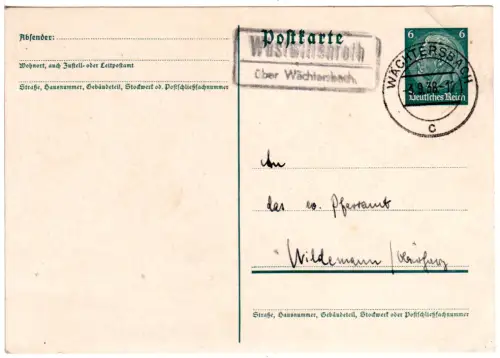 Absender:
Wohnort, auch Zustell- oder Leitpostamt
Straße, Hausnummer, Gebäudeteil, Stockwerk od. Postschließfachnummer
Postkarte
über Wächtersbach
6 6
Deutsches Reich
WÄCHTERSBACH
c
An
das ev. Pfarramt
Wildemann / Oberharz
Straße, Hausnummer, Gebäudeteil, Stockwerk oder Postschließfachnummer